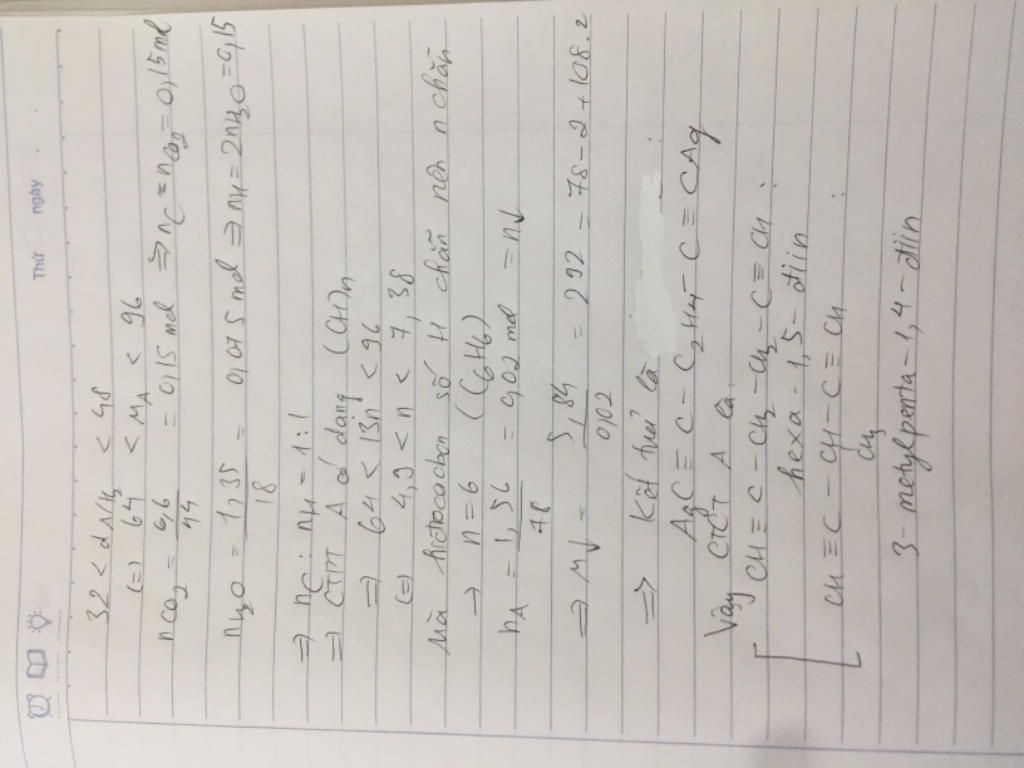 Thứ ngày
32 < dA/H₂ < 48
(=) 64 < MA < 96
nCO₂ = 6,6/44 = 0,15 mol => nC = nCO₂ = 0,15 mol
nH₂O = 1,35/18 = 0,075 mol => nH = 2nH₂O = 0,15
=> nC : nH = 1:1
=> CTPT A có dạng (CH)n
=> 64 < 13n < 96
(=) 4,9 < n < 7,38
Mà hiđrocacbon số H chẵn nên n chẵn
-> n = 6 (C6H6)
nA = 1,56/78 = 0,02 mol = n↓
=> M↓ = 5,84/0,02 = 292 = 78 - 2 + 108.2
=> Kết tủa là :
AgC ≡ C - C₂H₄ - C ≡ CAg
Vậy CTCT A là
CH ≡ C - CH₂ - CH₂ - C ≡ CH :
hexa - 1,5 - điin
CH ≡ C - CH - C ≡ CH :
CH₃
3 - metylpenta - 1,4 - điin